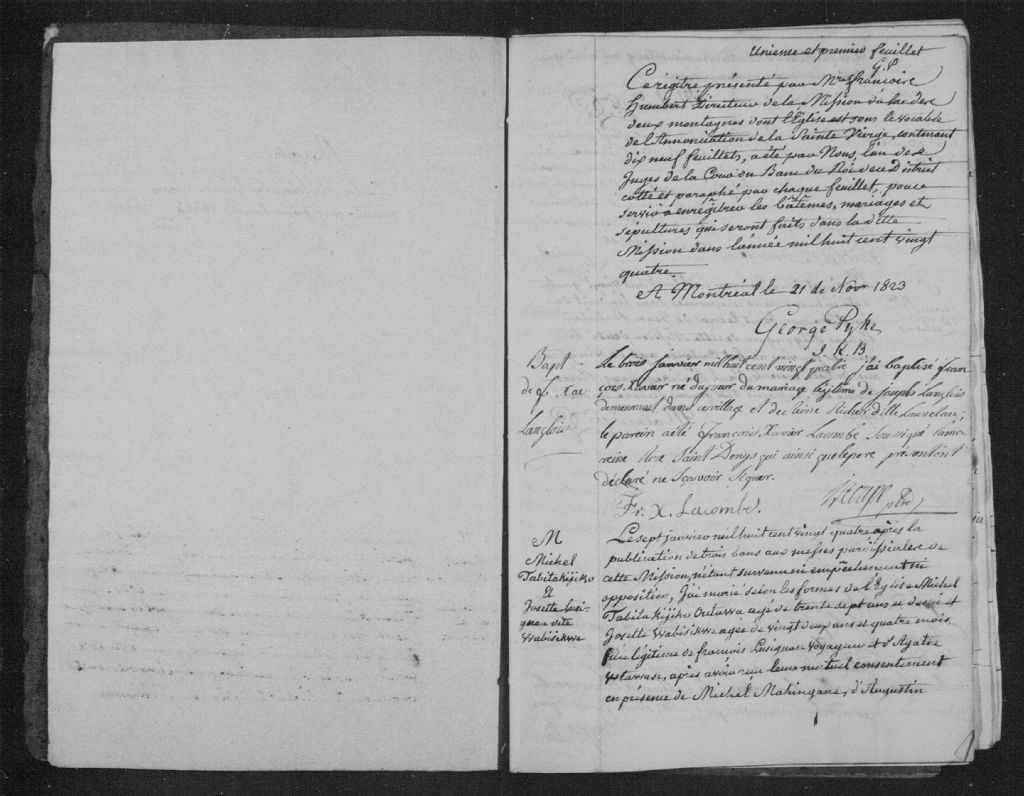 Unieme et premier feuillet
G. P
Ce régitre présenté par Mre francoire
Humbert Directeur de la Mission du lac des
deux montagnes dont l'Eglise est sous le vocable
de l'Annonciation de la Sainte Vierge, contenant
dix neuf feuillets, a été par Nous, l'un des
Juges de la Cour du Banc du Roi de ce District
cotté et paraphé par chaque feuillet, pour
servir à enrégitrer les bâtêmes, mariages et
sépultures qui seront faits dans la ditte
Mission dans l'année mil huit cent vingt
quatre.
A Montréal le 21 de Novr 1823
George Pyke
J. K. B.
Bapt
de f. Xav
Langlois
Le trois janvier mil huit cent vingt quatre j'ai baptisé fran
çois Xavier né du jour du mariage légitime de joseph Langlois
demeurant dans ce village et de
le parein a été françois Xavier Lacombe soussigné la ma
reine Rose Saint Denys qui ainsi que le pere présent ont
déclaré ne scavoir signer.
Fr. X. Lacombe.
ptre
M
Michel
Tabitakijiko
Et
Josette Lusi-
gnan dite
Wabisikwe
Le sept janvier mil huit cent vingt quatre après la
publication de trois bans aux messes paroissiales de
cette Mission, n'étant survenu ni empêchement ni
opposition, J'ai marié selon les formes de l'Eglise Michel
Tabitakijiko Outawa agé de trente sept ans et demi et
Josette Wabisikwe agée de vingt deux ans et quatre mois,
fille légitime de francois Lusignan voyageur et d'Agathe
après avoir reçu leur mutuel consentement
en présence de Michel Mahingans, d'Augustin
1